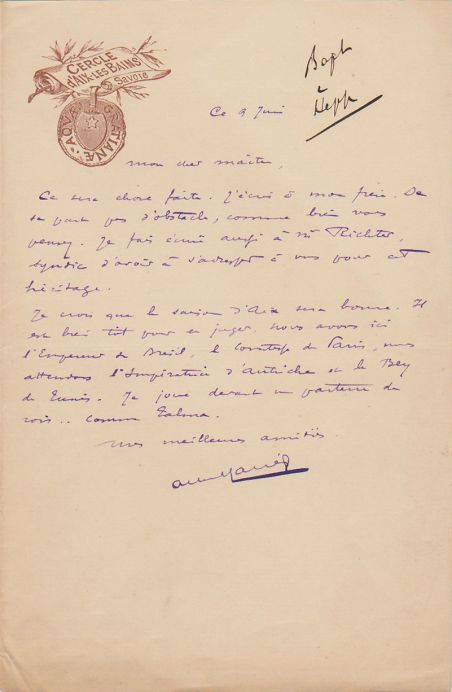 CERCLE
D'AIX-LES-BAINS
Savoie
AQVAE GRATIANAE
Ce 9 Juin
mon cher maître,
Ce sera chose faite. J'écris à mon frère. De
sa part pas d'obstacle, comme bien vous
pensez. Je fais écrire aussi à Mr Richter,
syndic d'avoir à s'adresser à vous pour cet
héritage.
Je crois que la saison d'Aix sera bonne. Il
est bien tôt pour en juger. nous avons ici
l'Empereur du Brésil, le comte de Paris, nous
attendons l'Impératrice d'Autriche et le Bey
de Tunis. Je joue devant un parterre de
rois.. comme Talma.
mes meilleures amitiés.